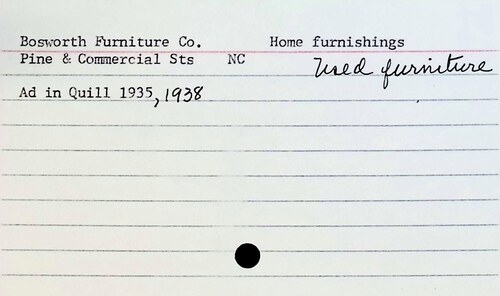 Bosworth Furniture Co. Home furnishings
Pine & Commercial Sts NC Used furniture
Ad in Quill 1935, 1938